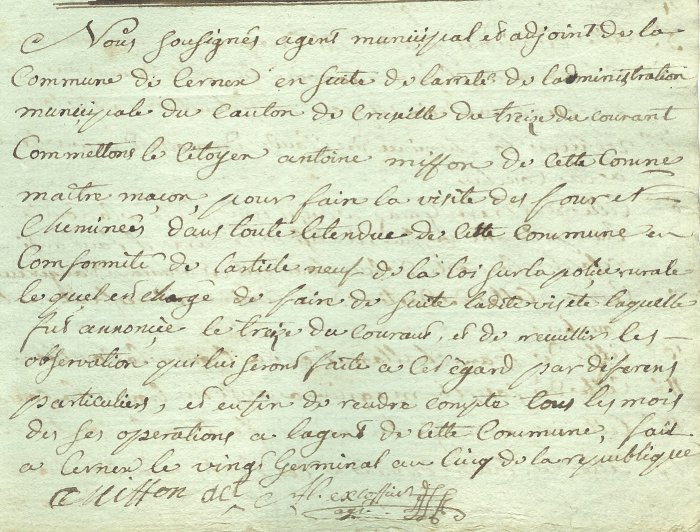 Nous sousignés agent municipal et adjoint de la
Commune de Cernex en suite de larreté de ladministration
municipale du Canton de Cruseille du treize du courant
Commettons le Citoyen antoine miffon de cette Comne
maitre maçon, pour faire la visite des four et
Cheminées dans toute letendue de cette Commune en
Conformité de larticle neuf de la loi sur la police rurale
le quel est chargé de faire de suite ladite visite laquelle
fut annoncée le treize du courant, et de receuillir les
observation qui lui seront faite a cet égard par diferens
particuliers, et enfin de rendre compte tous les mois
des ses operations a lagent de cette Commune, fait
a Cernex le vingt Germinal an Cinq de la republique
Miffon
agt.